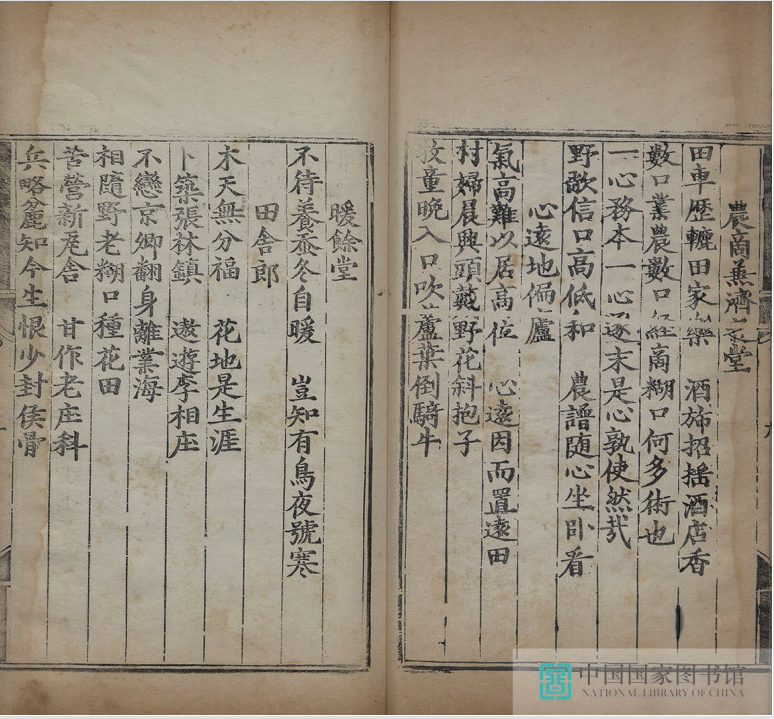 農商兼濟之堂
田車歷轆田家樂 酒斾招揺酒店香
數口業農數口經商糊口何多術也
一心務本一心逐末是心孰使然㢤
野歌信口高低和 農譜随心坐卧看
心遠地偏廬
氣高難以居高位 心遠因而置遠田
村婦晨興頭戴野花斜抱子
牧童晩入口吹蘆葉倒騎牛
暖餘堂
不待養蚕冬自暖 豈知有鳥夜號寒
田舍郎
木天無分福 花地是生涯
卜築張林鎮 遨遊李相庄
不戀京卿翻身離業海
相隨野老糊口種花田
苦營新舍 甘作老庄科
兵畧麄知今生恨少封侯骨
中国国家图书馆
NATIONAL LIBRARY OF CHINA